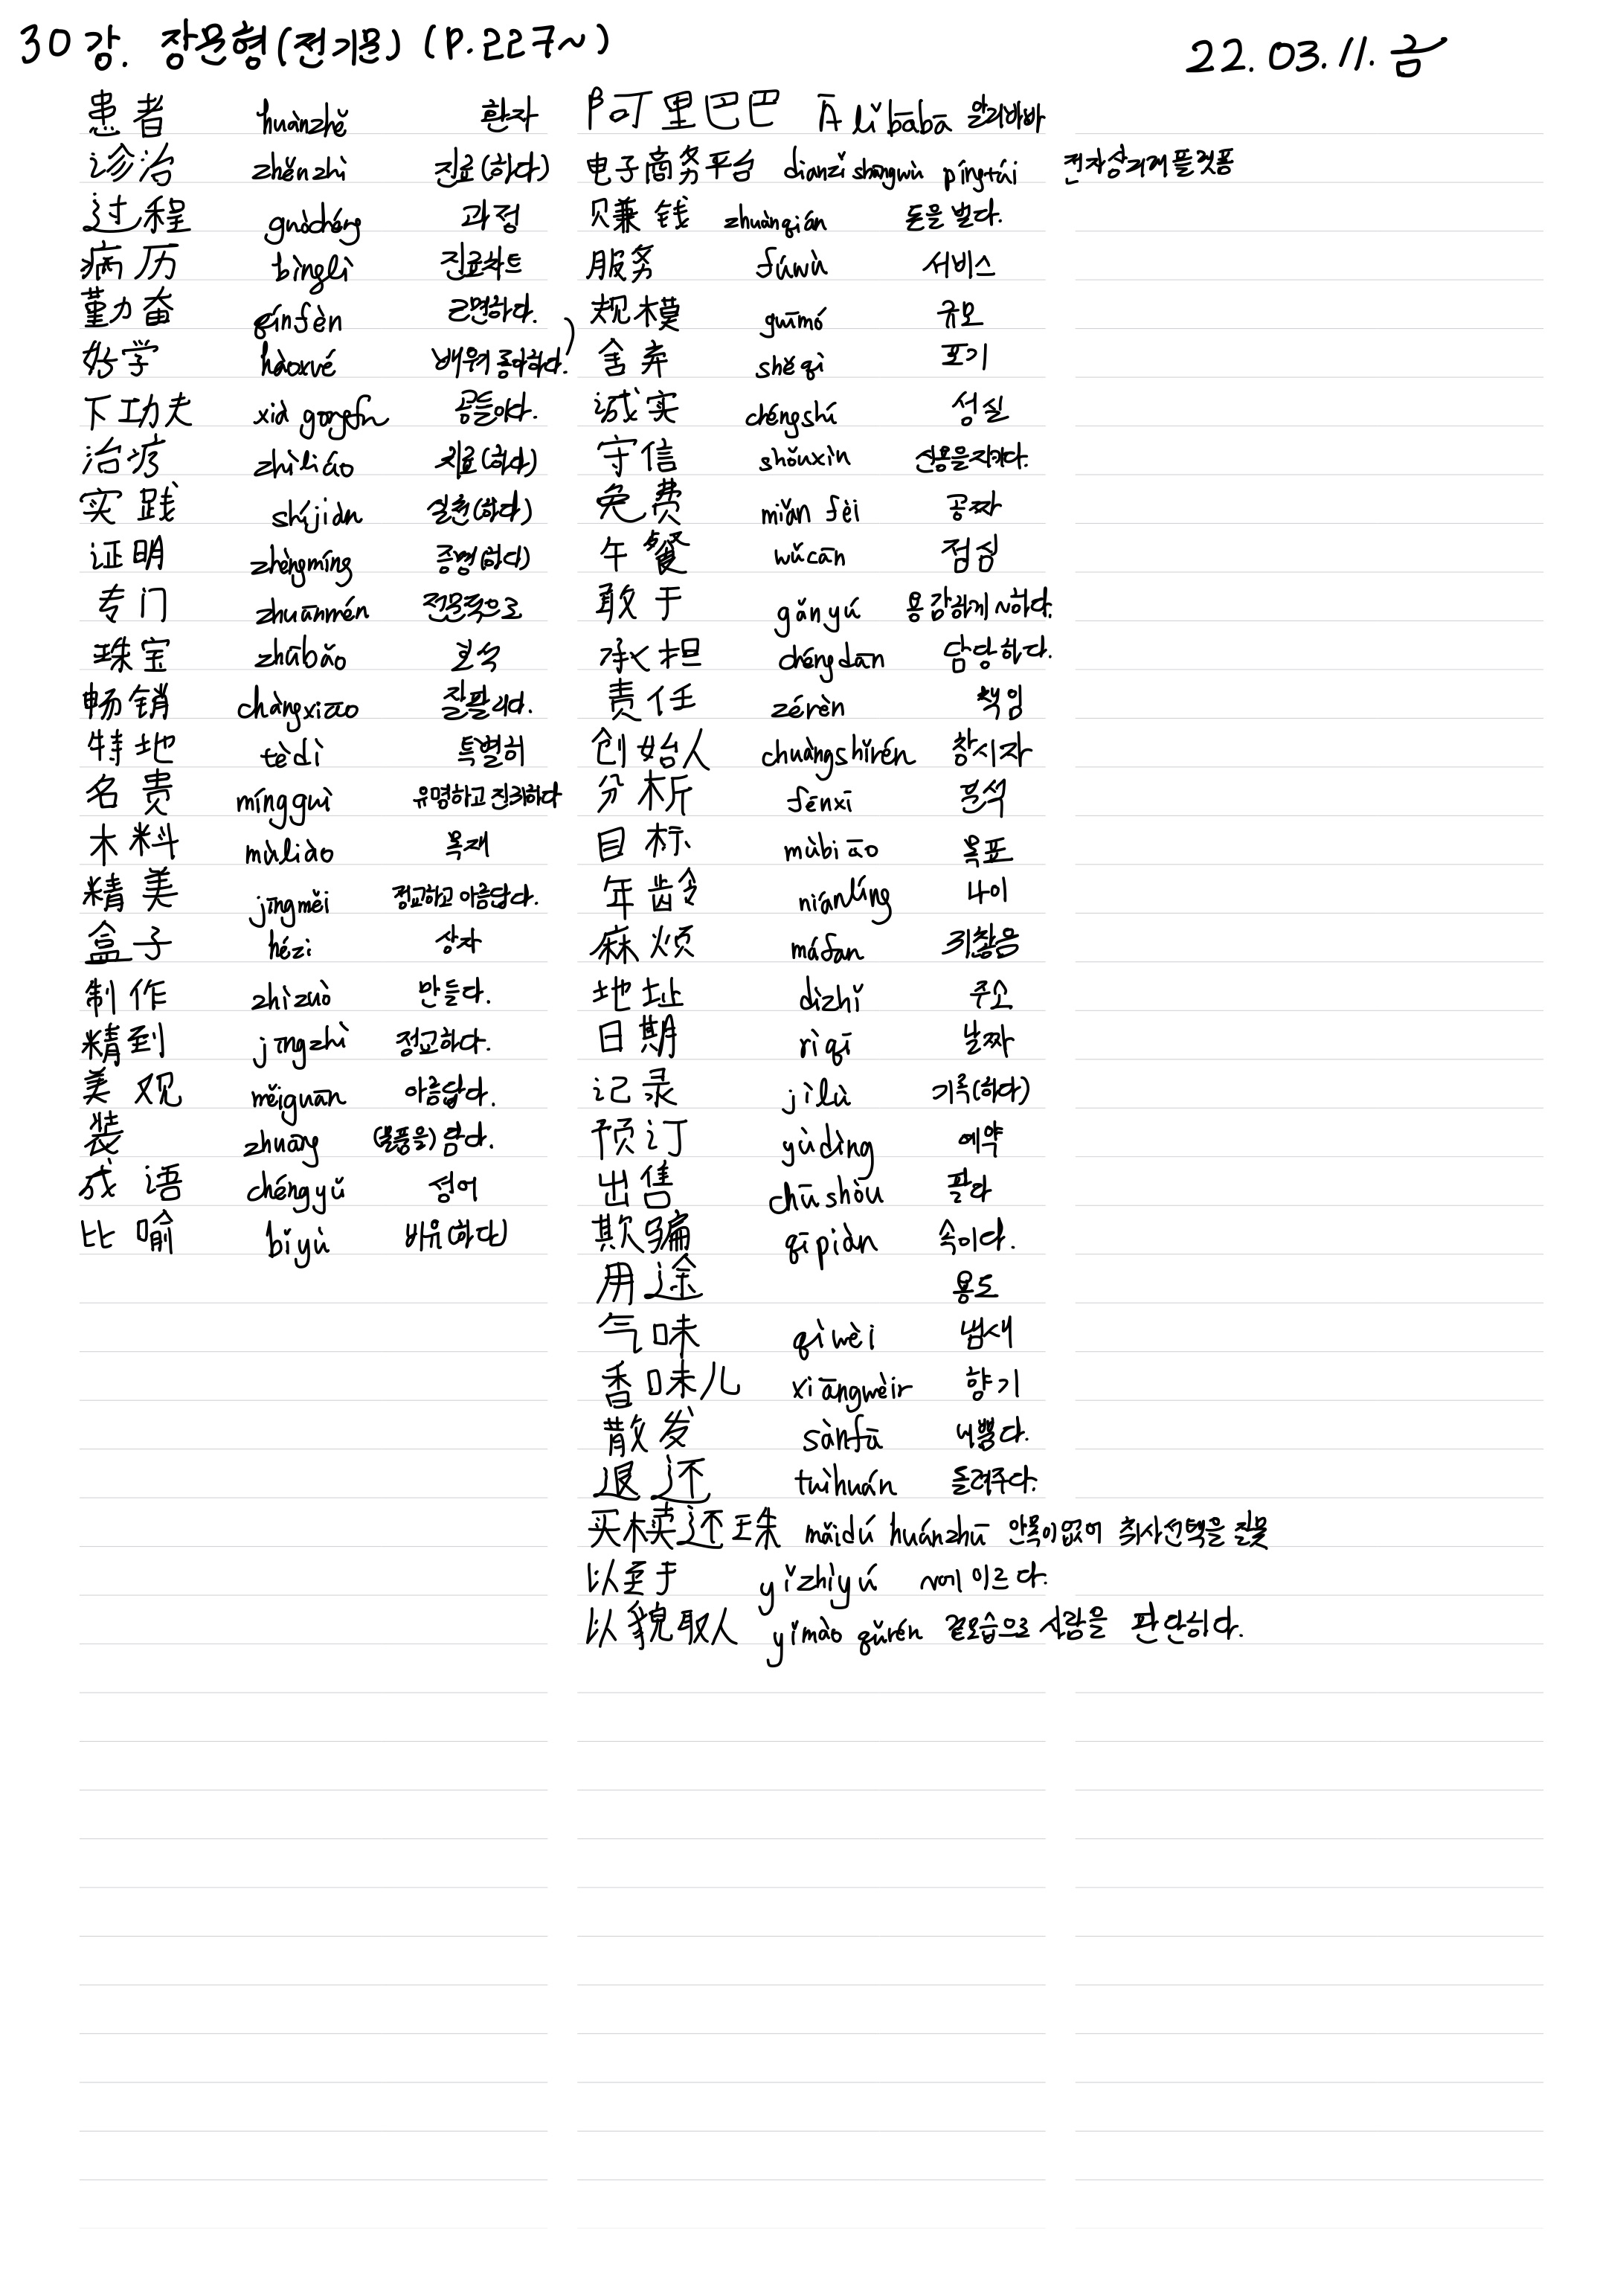 30강. 장문형(전기문) (P.227~)
22.03.11. 금
患者 huànzhě 환자
诊治 zhěnzhì 진료(하다)
过程 guòchéng 과정
病历 bìnglì 진료차트
勤奋 qínfèn 근면하다.
好学 hàoxué 배워 좋아하다.
下功夫 xià gongfu 공들이다.
治疗 zhìliáo 치료(하다)
实践 shíjiàn 실천(하다)
证明 zhèngmíng 증명(하다)
专门 zhuānmén 전문적으로
珠宝 zhūbǎo 보석
畅销 chàngxiāo 잘팔리다.
特地 tèdì 특별히
名贵 míngguì 유명하고 진귀하다
木料 mùliào 목재
精美 jīngměi 정교하고 아름답다.
盒子 hézi 상자
制作 zhìzuò 만들다.
精到 jīngzhì 정교하다.
美观 měiguān 아름답다.
装 zhuāng (물품을) 담다.
成语 chéngyǔ 성어
比喻 bǐyù 비유(하다)
阿里巴巴 Ā lǐ bābā 알리바바
电子商务平台 diànzǐ shāngwù píngtái 전자상거래 플랫폼
赚钱 zhuànqián 돈을 벌다.
服务 fúwù 서비스
规模 guīmó 규모
舍弃 shěqì 포기
诚实 chéngshí 성실
守信 shǒuxìn 신용을 지키다.
免费 miǎn fèi 공짜
午餐 wǔcān 점심
敢于 gǎnyú 용감하게 ~하다.
承担 chéngdān 담당하다.
责任 zérèn 책임
创始人 chuàngshǐrén 창시자
分析 fēnxī 분석
目标 mùbiāo 목표
年龄 niánlíng 나이
麻烦 máfan 귀찮음
地址 dìzhǐ 주소
日期 rìqī 날짜
记录 jìlù 기록(하다)
预订 yùdìng 예약
出售 chūshòu 팔다
欺骗 qīpiàn 속이다.
用途 용도
气味 qìwèi 냄새
香味儿 xiāngwèir 향기
散发 sànfā 내뿜다.
退还 tuìhuán 돌려주다.
买椟还珠 mǎidú huánzhū 안목이 없어 취사선택을 잘못
以至于 yǐzhìyú ~에 이르다.
以貌取人 yǐmào qǔrén 겉모습으로 사람을 판단하다.